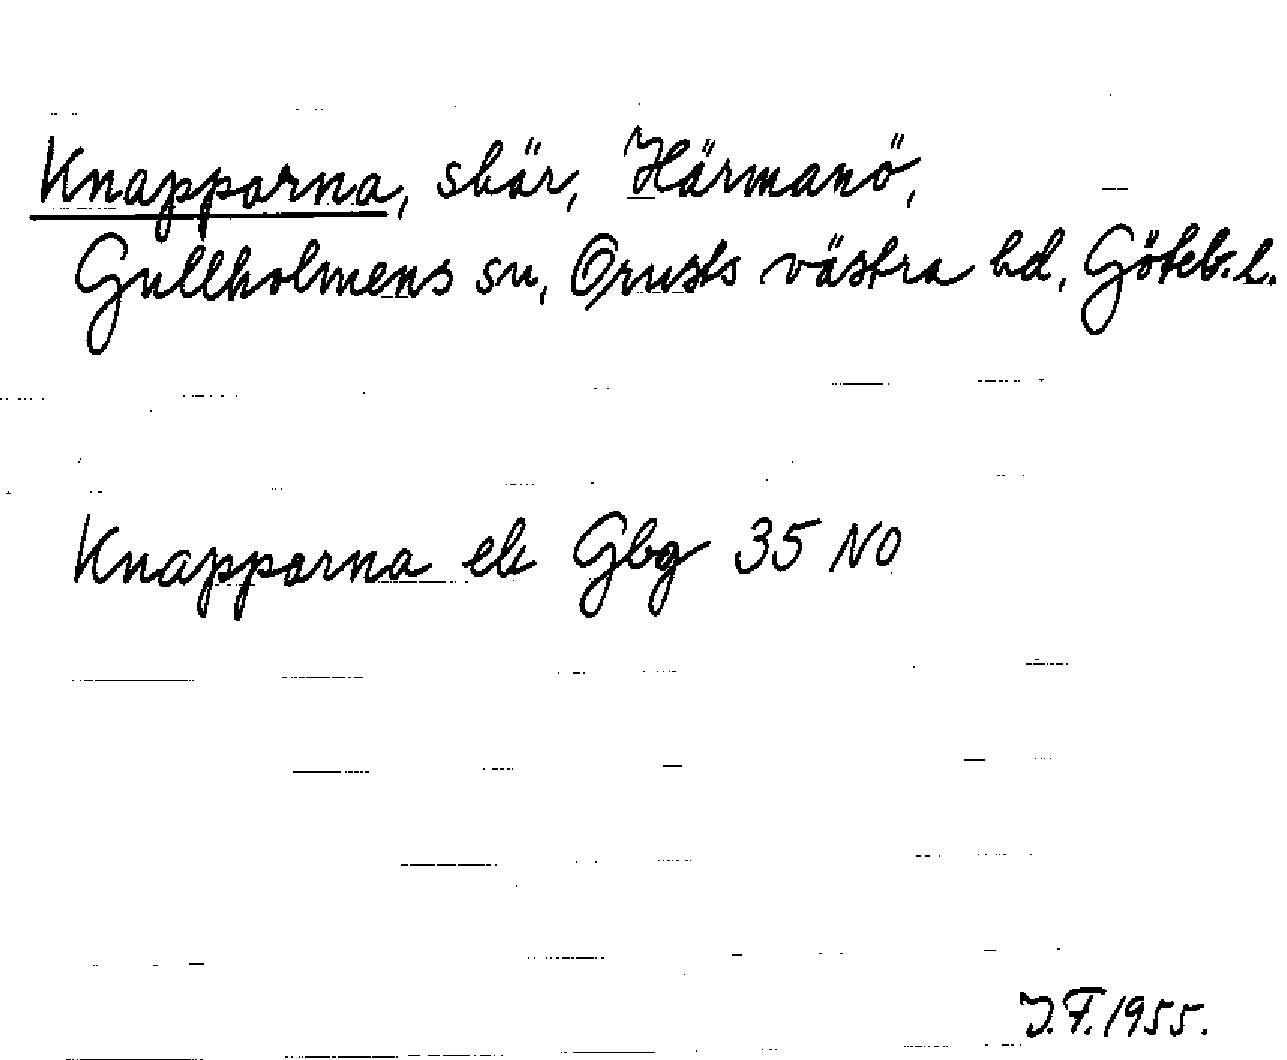 Knapparna, skär, Härmanö,
Gullholmens sn, Orusts västra hd, Göteb. l.
Knapparna ek Gbg 35 NO
J.F. 1955.